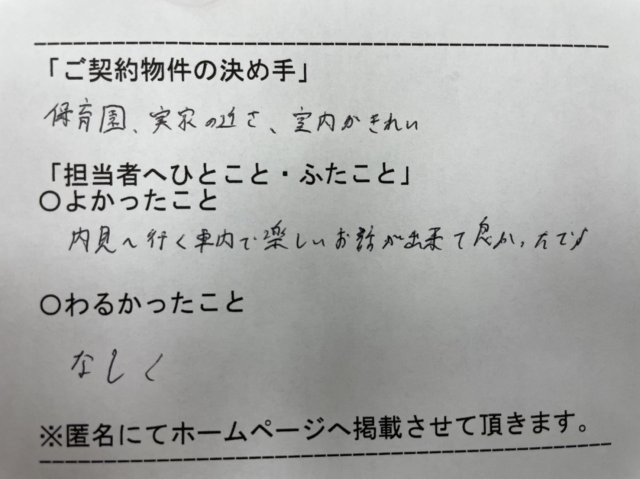 「ご契約物件の決め手」
保育園、実家の近さ、室内がきれい
「担当者へひとこと・ふたこと」
○よかったこと
内見へ行く車内で楽しいお話が出来て良かったです
○わるかったこと
なし
※匿名にてホームページへ掲載させて頂きます。